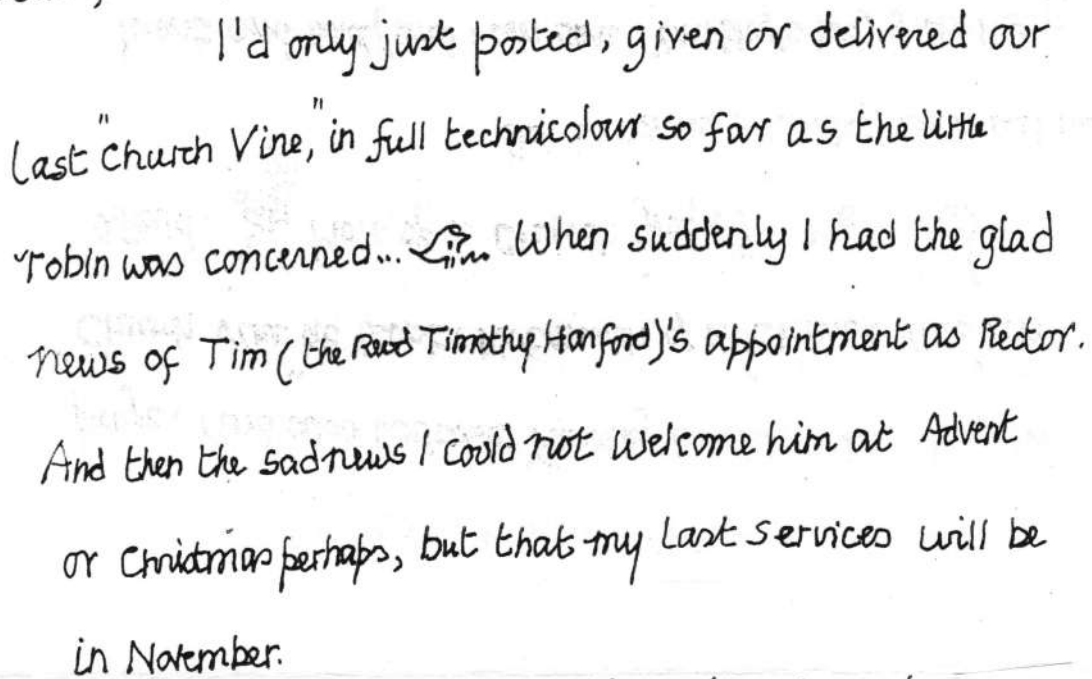 I'd only just posted, given or delivered our
last "Church Vine," in full technicolour so far as the little
robin was concerned... When suddenly I had the glad
news of Tim (the Revd Timothy Hanford)'s appointment as Rector.
And then the sad news I could not welcome him at Advent
or Christmas perhaps, but that my last services will be
in November.